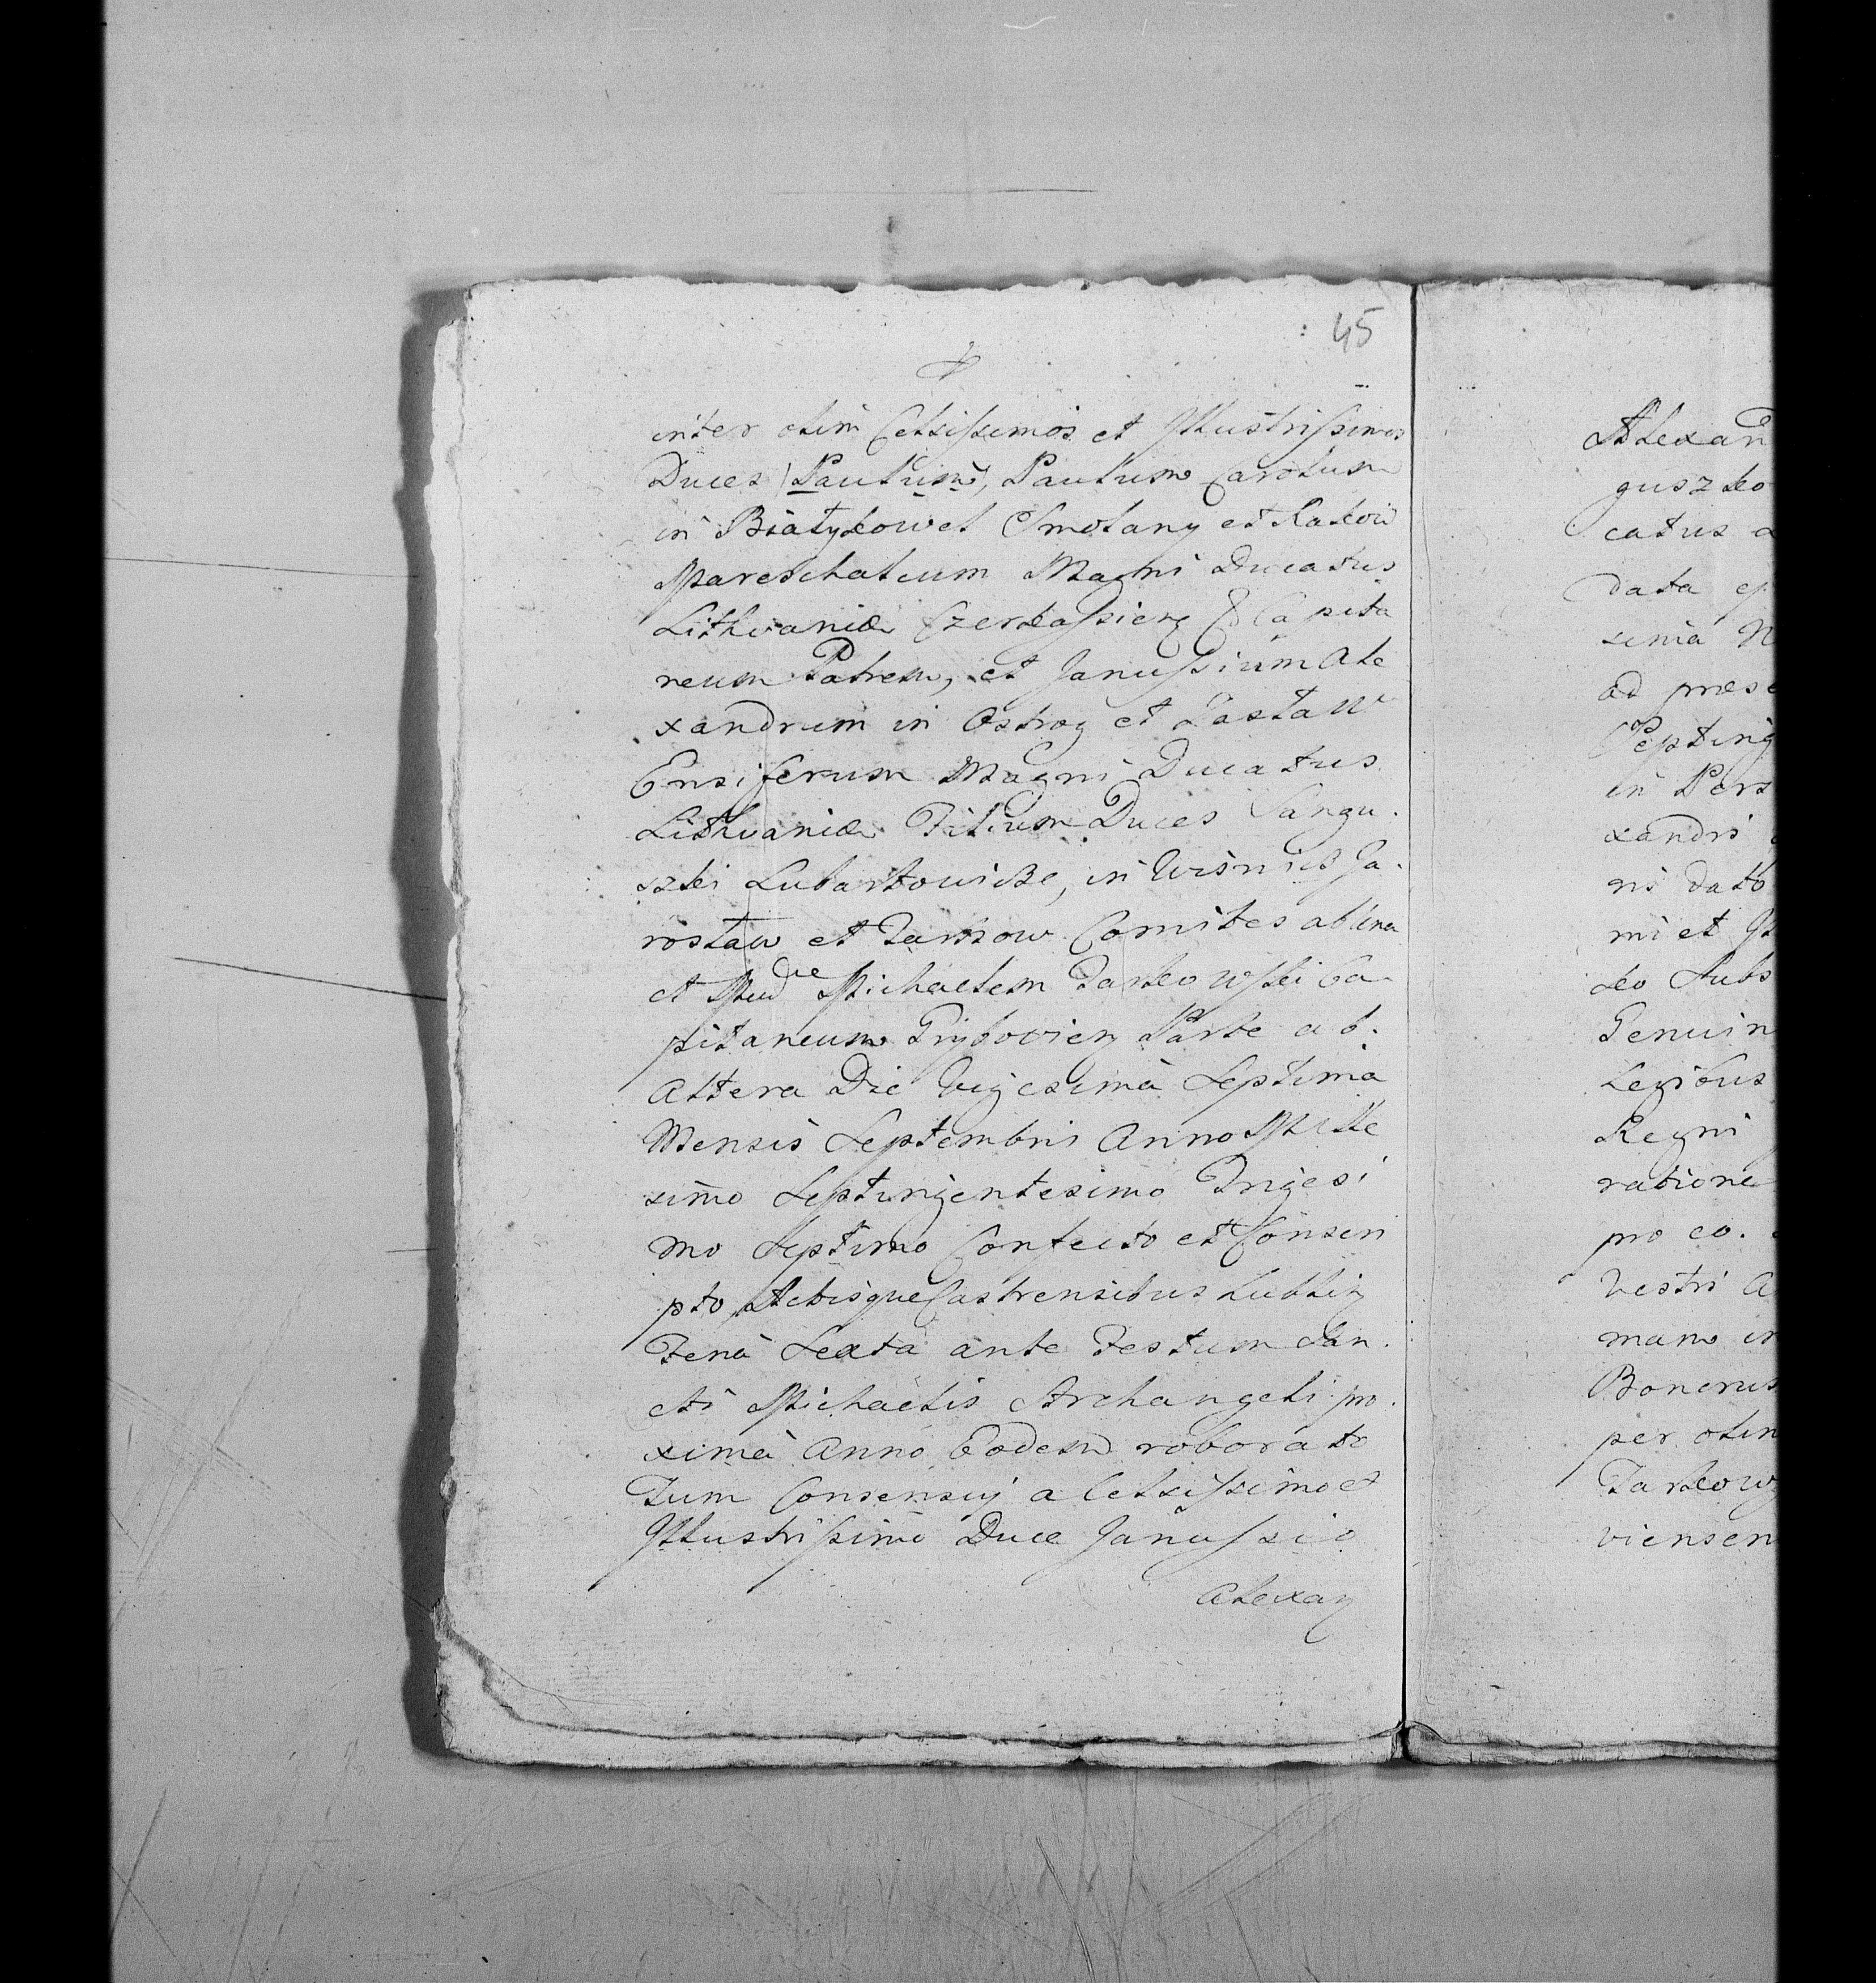 45
inter olim Celsissimos et Illustrissimos
Duces (Paulum), Paulum Carolum
in Białykow et Smolany et Rakow
Mareschalcum Magni Ducatus
Lithvaniæ Czerkassien & Capita
neum Patrem, et Janussium Ale
xandrum in Ostrog et Zasław
Ensiferum Magni Ducatus
Lithvaniæ Filium Duces Sangu.
szki Lubartowicze, in Wisnicz Ja.
rosław et Tarnow Comites ab una
et Mud Michaelem Tarkowski Ca
pitaneum Parte ab.
altera Die Vigesimà Septima
Mensis Septembris Anno Mille
simo Septingentesimo Trigesi
mo Septimo Confecto et Conscri
pto Actisque Castrensibus Lublin
Feria Sexta ante Festum San.
cti Michaelis Archangeli pro.
ximà Anno Eodem roborato
Tum Consensuj a Celsissimo et
Illustrissimo Duce Janussio
Alexan
Alexan
guszko
catus
data
sima
ad præse
Septing
in Pers
xandri
ris dato
mi et Il
ko Subs
Genuin
Legibus
Regni
ratione
pro eo.
Vestri A
mano in
Bonorus
per olim
Tarkow
viensem